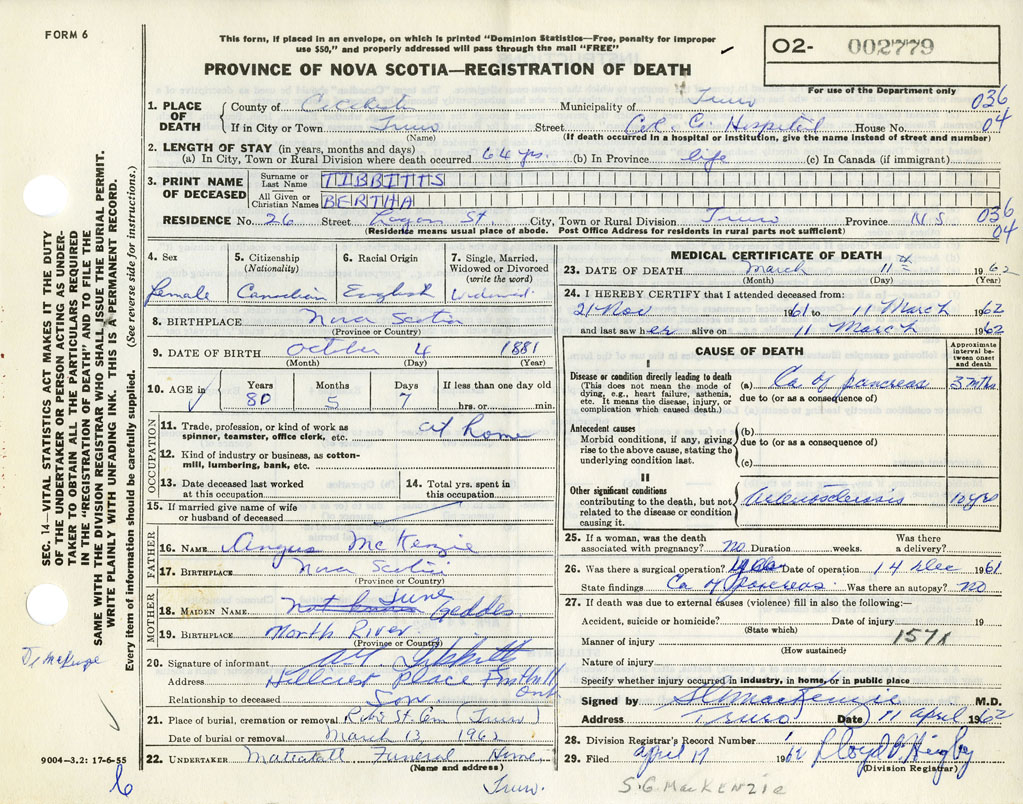 FORM 6
This form, if placed in an envelope, on which is printed "Dominion Statistics—Free, penalty for improper
use $50," and properly addressed will pass through the mail "FREE"
PROVINCE OF NOVA SCOTIA—REGISTRATION OF DEATH
02- 002779
For use of the Department only
1. PLACE OF DEATH County of Colchester Municipality of Truro 036
If in City or Town Truro Street Col. C. Hospital House No. 04
(Name) (If death occurred in a hospital or institution, give the name instead of street and number)
2. LENGTH OF STAY (in years, months and days)
(a) In City, Town or Rural Division where death occurred 64 yrs. (b) In Province life (c) In Canada (if immigrant)
3. PRINT NAME OF DECEASED Surname or Last Name TIBBITTS
All Given or Christian Names BERTHA
RESIDENCE No. 26 Street Logan St. City, Town or Rural Division Truro Province N.S 036
(Residence means usual place of abode. Post Office Address for residents in rural parts not sufficient) 04
4. Sex 5. Citizenship (Nationality) 6. Racial Origin 7. Single, Married, Widowed or Divorced (write the word)
female Canadian English Widowed
8. BIRTHPLACE Nova Scotia
(Province or Country)
9. DATE OF BIRTH October 4 1881
(Month) (Day) (Year)
10. AGE in Years Months Days If less than one day old
80 5 7 hrs. or min.
OCCUPATION
11. Trade, profession, or kind of work as spinner, teamster, office clerk, etc. at home
12. Kind of industry or business, as cotton-mill, lumbering, bank, etc.
13. Date deceased last worked at this occupation 14. Total yrs. spent in this occupation
15. If married give name of wife or husband of deceased
FATHER
16. NAME Angus McKenzie
17. BIRTHPLACE Nova Scotia
(Province or Country)
MOTHER
18. MAIDEN NAME June Geddes
19. BIRTHPLACE North River
(Province or Country)
20. Signature of informant Tibbitts
Address Hillcrest Place Ont
Relationship to deceased Son
21. Place of burial, cremation or removal Robie St. Cem (Truro)
Date of burial or removal March 13, 1962
22. UNDERTAKER Mattatall Funeral Home
(Name and address)
Truro.
MEDICAL CERTIFICATE OF DEATH
23. DATE OF DEATH March 11th 1962
(Month) (Day) (Year)
24. I HEREBY CERTIFY that I attended deceased from:
21 Nov 1961 to 11 March 1962
and last saw her alive on 11 March 1962
CAUSE OF DEATH
Approximate interval between onset and death
I
Disease or condition directly leading to death (a) Ca of pancreas 3 mths
(This does not mean the mode of dying, e.g., heart failure, asthenia, etc. It means the disease, injury, or complication which caused death.) due to (or as a consequence of)
Antecedent causes (b)
Morbid conditions, if any, giving rise to the above cause, stating the underlying condition last. due to (or as a consequence of)
(c)
II
Other significant conditions contributing to the death, but not related to the disease or condition causing it. Arteriosclerosis 10 yrs
25. If a woman, was the death associated with pregnancy? no Duration weeks. Was there a delivery?
26. Was there a surgical operation? yes Date of operation 14 Dec 1961
State findings Ca of pancreas Was there an autopsy? no
27. If death was due to external causes (violence) fill in also the following:—
Accident, suicide or homicide? Date of injury 19
(State which)
Manner of injury 157x
(How sustained)
Nature of injury
Specify whether injury occurred in industry, in home, or in public place
Signed by SG MacKenzie M.D.
Address Truro Date 11 April 1962
28. Division Registrar's Record Number 1
29. Filed April 17 1962
(Division Registrar)
S.G MacKENZIE
SEC. 14—VITAL STATISTICS ACT MAKES IT THE DUTY
OF THE UNDERTAKER OR PERSON ACTING AS UNDER-
TAKER TO OBTAIN ALL THE PARTICULARS REQUIRED
IN THE "REGISTRATION OF DEATH" AND TO FILE THE
SAME WITH THE DIVISION REGISTRAR WHO SHALL ISSUE THE BURIAL PERMIT.
WRITE PLAINLY WITH UNFADING INK. THIS IS A PERMANENT RECORD.
Every item of information should be carefully supplied. (See reverse side for instructions.)
9004-3.2: 17-6-55